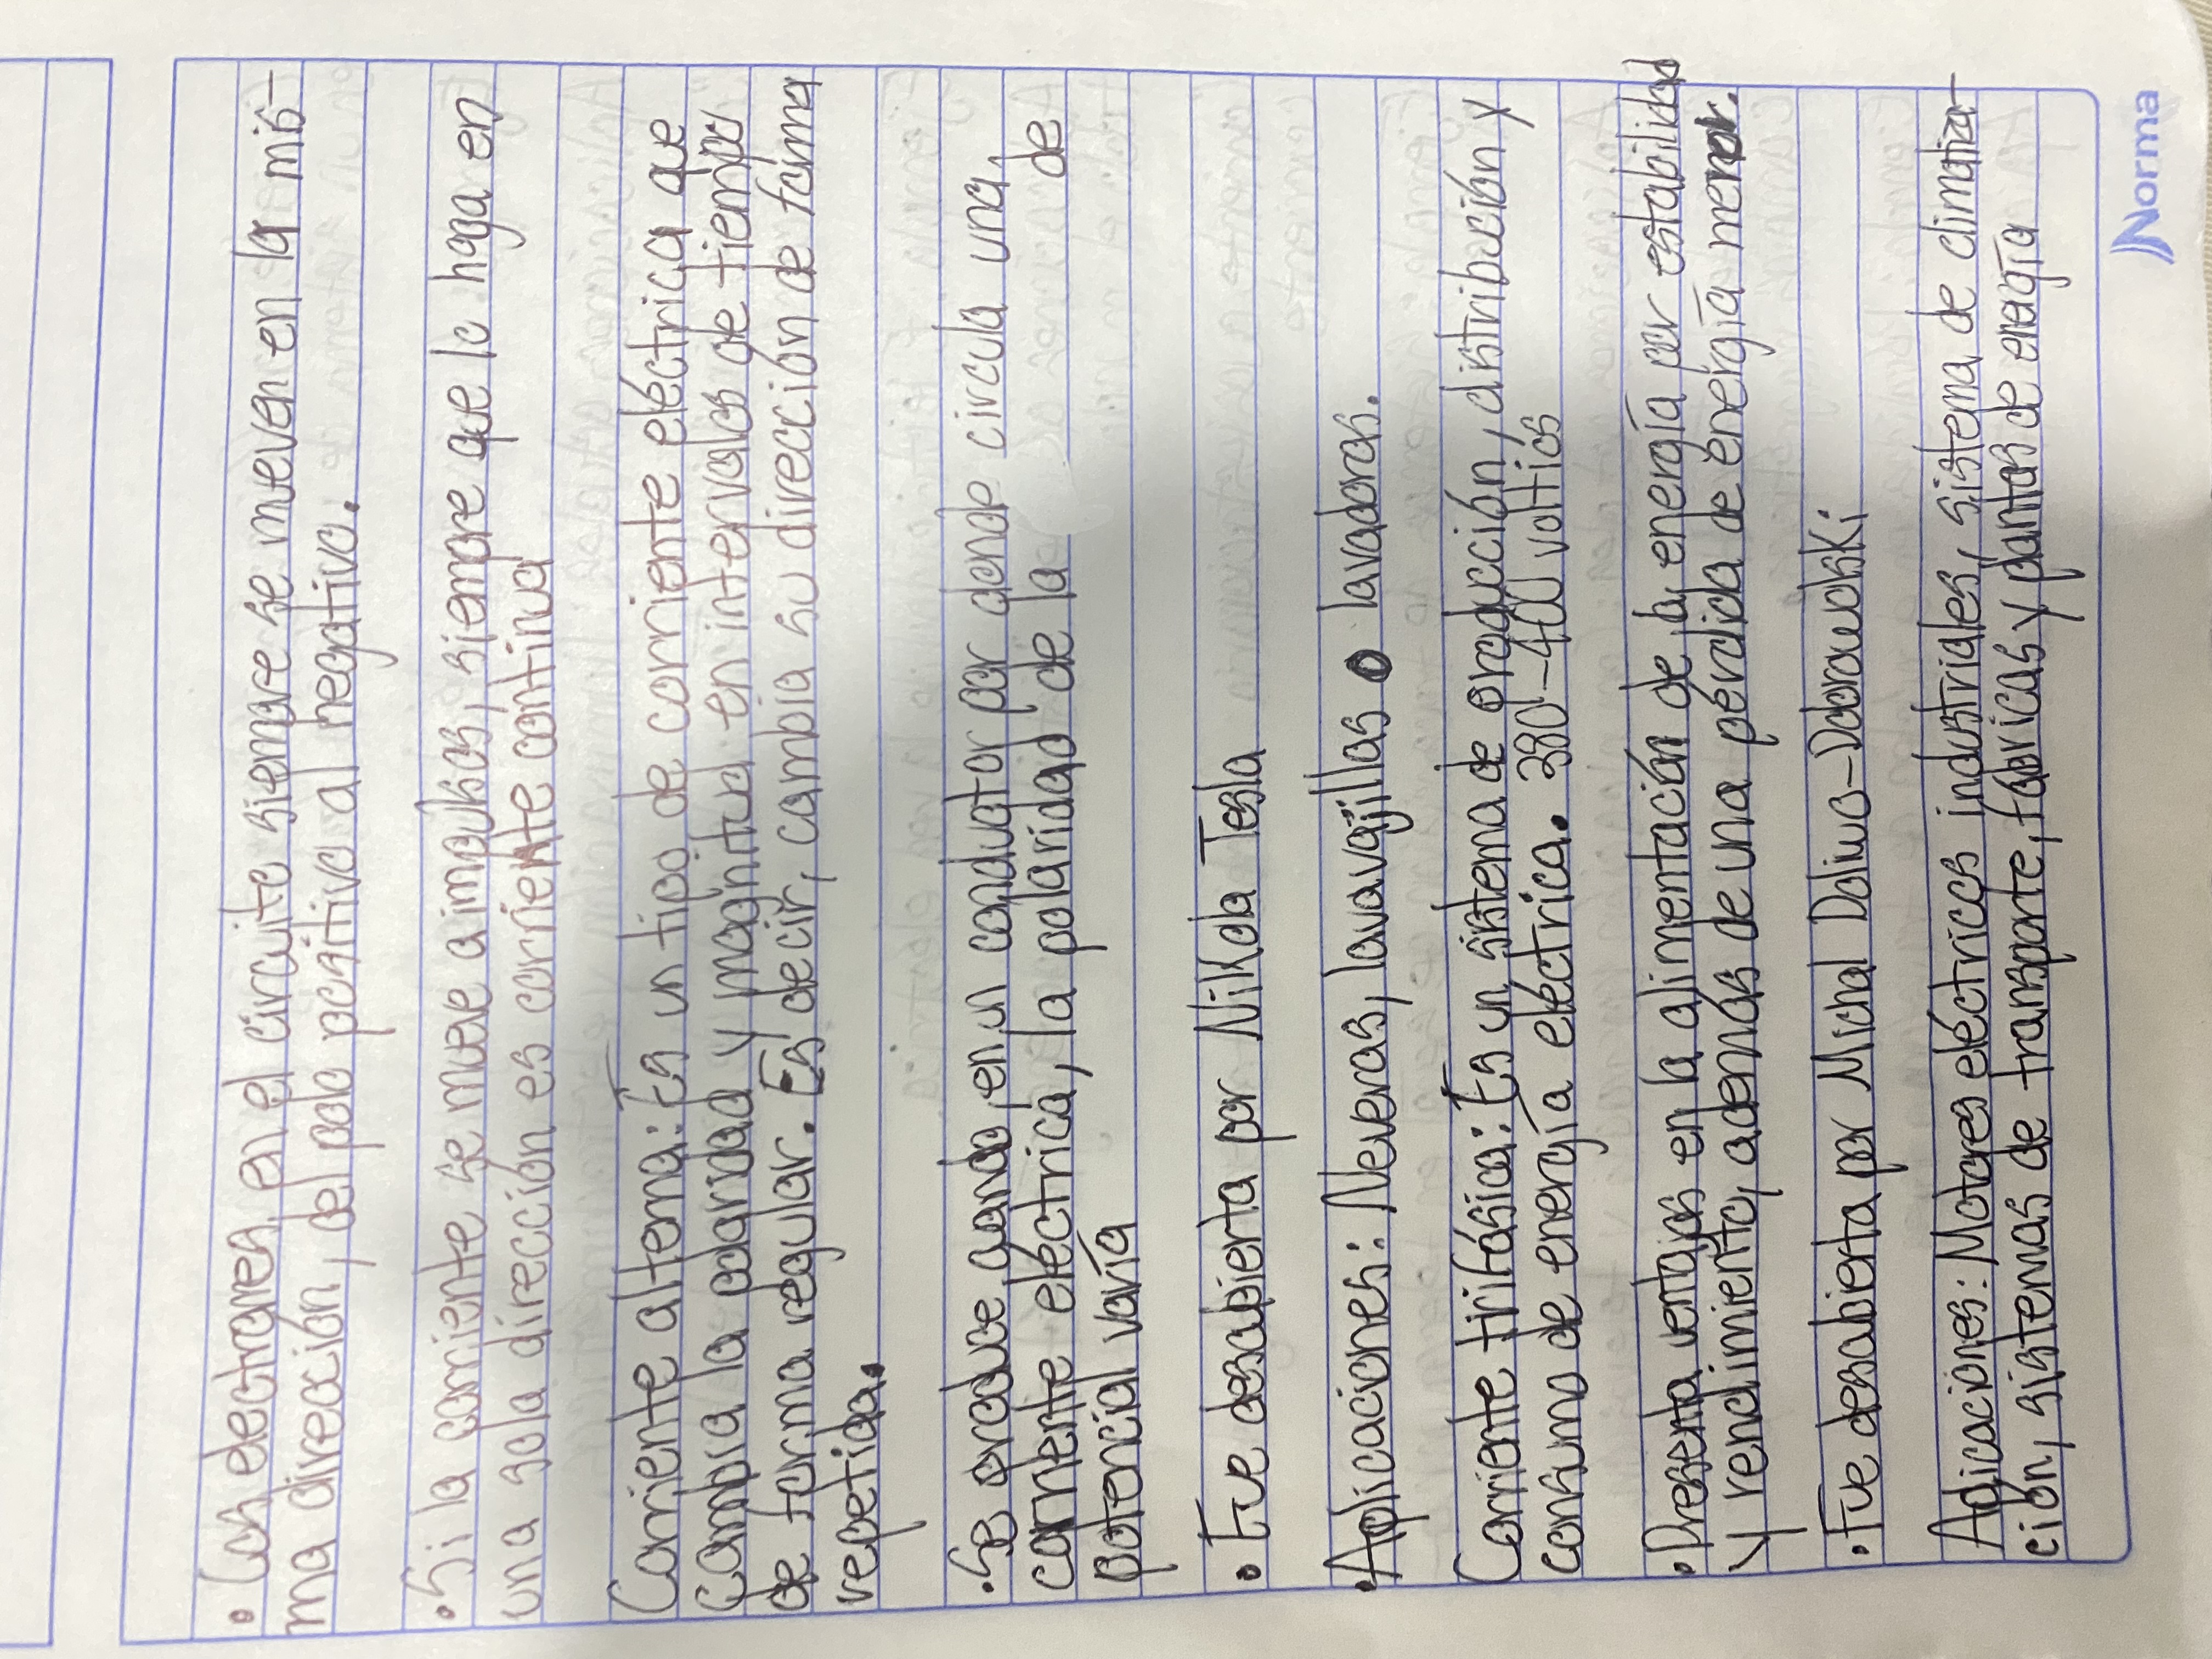 • Los electrones en el circuito siempre se mueven en la mis-
ma dirección, del polo positivo al negativo.
• Si la corriente se mueve a impulsos, siempre que lo haga en
una sola dirección es corriente continua
Corriente alterna: Es un tipo de corriente eléctrica que
cambia la polaridad y magnitud en intervalos de tiempo
de forma regular. Es decir, cambia su dirección de forma
repetida.
• Se produce cuando en un conductor por donde circula una
corriente eléctrica, la polaridad de la de
potencial varía
• Fue descubierta por Nikola Tesla
• Aplicaciones: Neveras, lavavajillas o lavadoras.
Corriente trifásica: Es un sistema de producción, distribución y
consumo de energía eléctrica. 380-400 voltios
• Presenta ventajas en la alimentación de la energía por estabilidad
y rendimiento, además de una pérdida de energía menor.
• Fue descubierta por Michal Dolivo-Dobrowolski
Aplicaciones: Motores eléctricos industriales, sistema de climatiza-
ción, sistemas de transporte, fábricas y plantas de energía
Norma